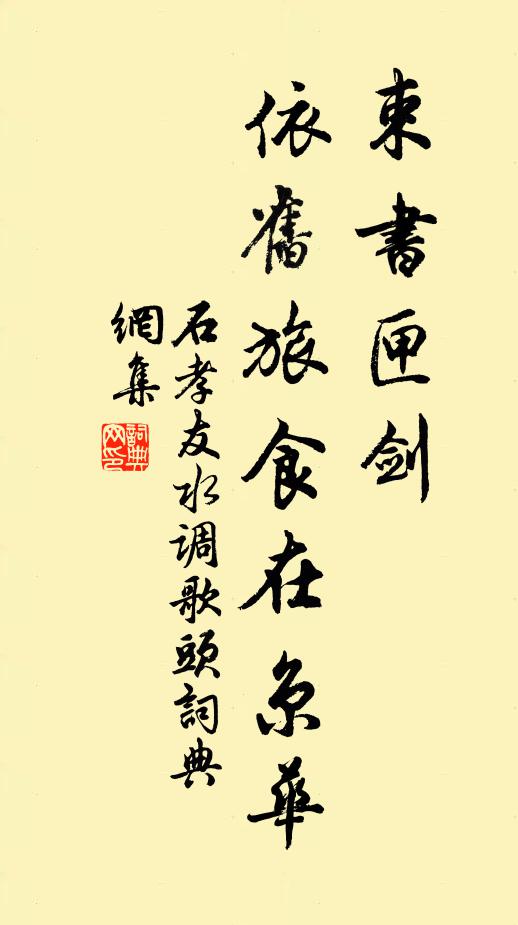 束書匣劍
依舊旅食在京華
石孝友水调歌頭詞典
網集
詞典網印